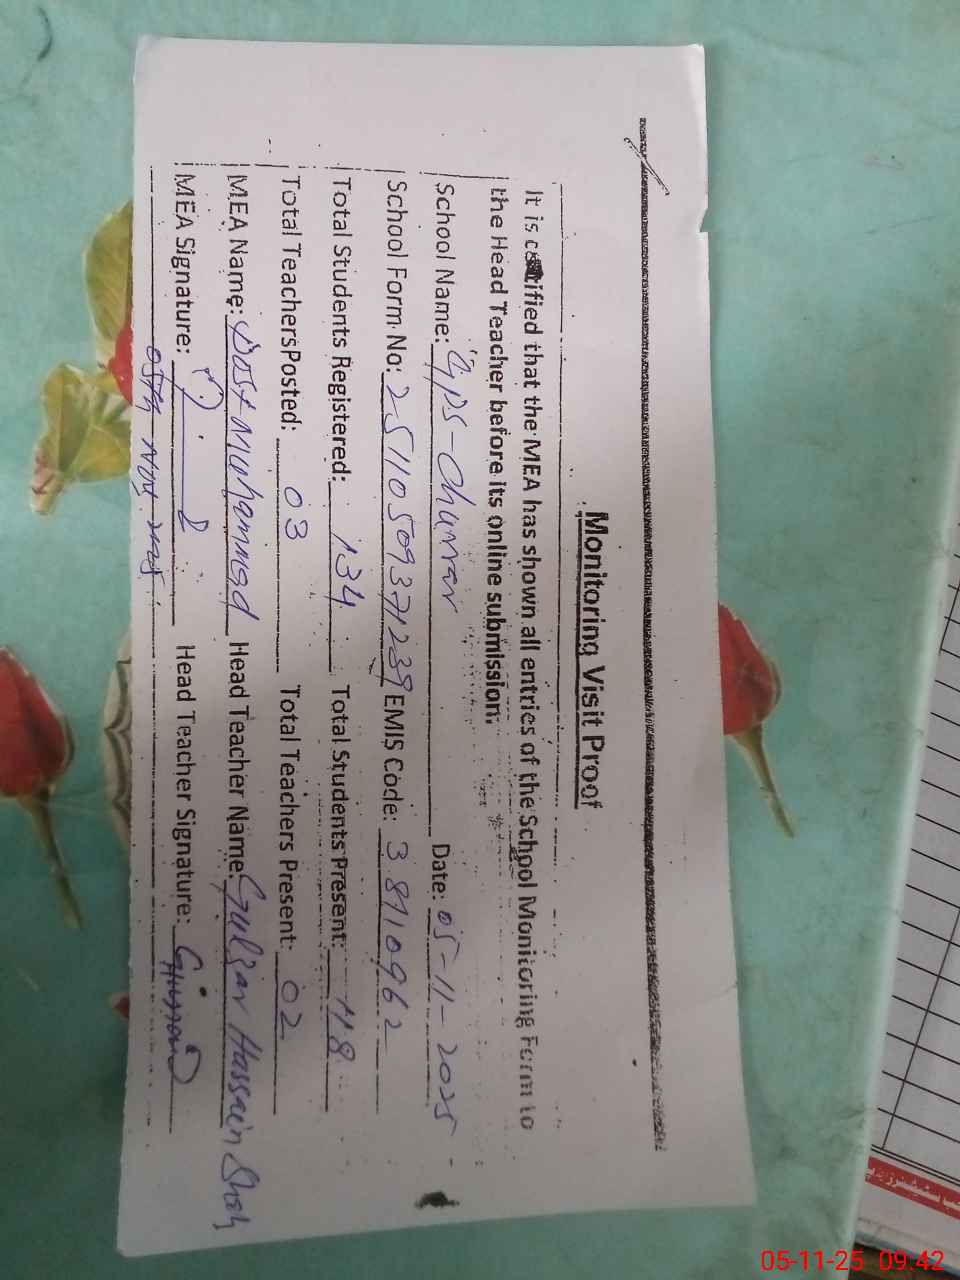 Monitoring Visit Proof
It is certified that the MEA has shown all entries of the School Monitoring Form to
the Head Teacher before its online submission.
School Name: GPS-Chunrar Date: 05-11-2025
School Form No: 25110509371239 EMIS Code: 38110962
Total Students Registered: 134 Total Students Present: 118
Total Teachers Posted: 03 Total Teachers Present: 02
MEA Name: Dost Muhammad Head Teacher Name: Gulzar Hassain Shah
MEA Signature: Head Teacher Signature:
05th Nov. 2025
05-11-25 09:42